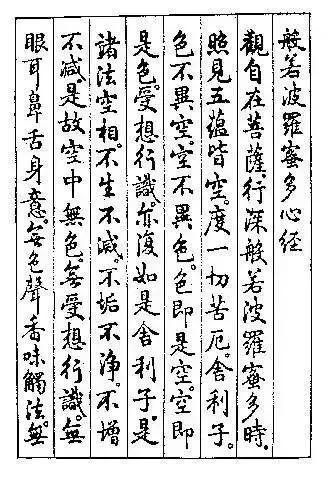 般若波羅蜜多心经
觀自在菩薩。行深般若波羅蜜多時。
照見五蕴皆空。度一切苦厄。舍利子。
色不異空。空不異色。色即是空。空即
是色。受想行識。亦復如是。舍利子。是
諸法空相。不生不滅。不垢不浄。不增
不減。是故空中無色。無受想行識。無
眼耳鼻舌身意。無色聲香味觸法。無